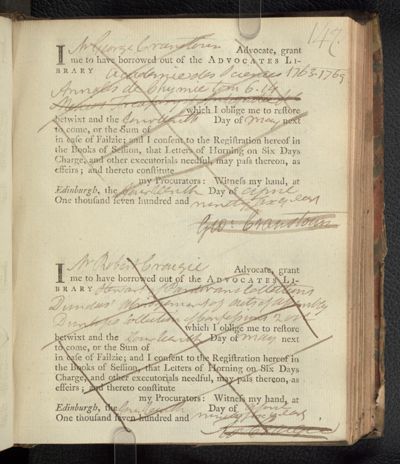 147.
I Mr George Cranstoun Advocate, grant
me to have borrowed out of the ADVOCATES LI-
BRARY Academie des Sciences 1763-1769
Annales de Chymie tom 6-14
which I oblige me to restore
betwixt and the Day of May next
to come, or the Sum of
in case of Failzie; and I consent to the Registration hereof in
the Books of Session, that Letters of Horning on Six Days
Charge, and other executorials needful, may pass thereon, as
effeirs; and thereto constitute
my Procurators: Witness my hand, at
Edinburgh, the Day of April
One thousand seven hundred and ninety six years
Geo: Cranstoun
I Mr Robert Craigie Advocate, grant
me to have borrowed out of the ADVOCATES LI-
BRARY Collections
Dundas' of acts of assembly
Dunlops collection of confessions 2
which I oblige me to restore
betwixt and the Day of May next
to come, or the Sum of
in case of Failzie; and I consent to the Registration hereof in
the Books of Session, that Letters of Horning on Six Days
Charge, and other executorials needful, may pass thereon, as
effeirs; and thereto constitute
my Procurators: Witness my hand, at
Edinburgh, the Day of April
One thousand seven hundred and ninety six years
Craigie